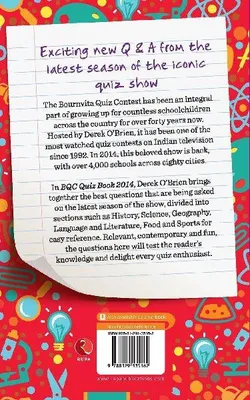 Exciting new Q & A from the
latest season of the iconic
quiz show
The Bournvita Quiz Contest has been an integral
part of growing up for countless schoolchildren
across the country for over forty years now.
Hosted by Derek O'Brien, it has been one of the
most watched quiz contests on Indian television
since 1992. In 2014, this beloved show is back,
with over 4,000 schools across eighty cities.
In BQC Quiz Book 2014, Derek O'Brien brings
together the best questions that are being asked
on the latest season of the show, divided into
sections such as History, Science, Geography,
Language and Literature, Food and Sports for
easy reference. Relevant, contemporary and fun,
the questions here will test the reader's
knowledge and delight every quiz enthusiast.